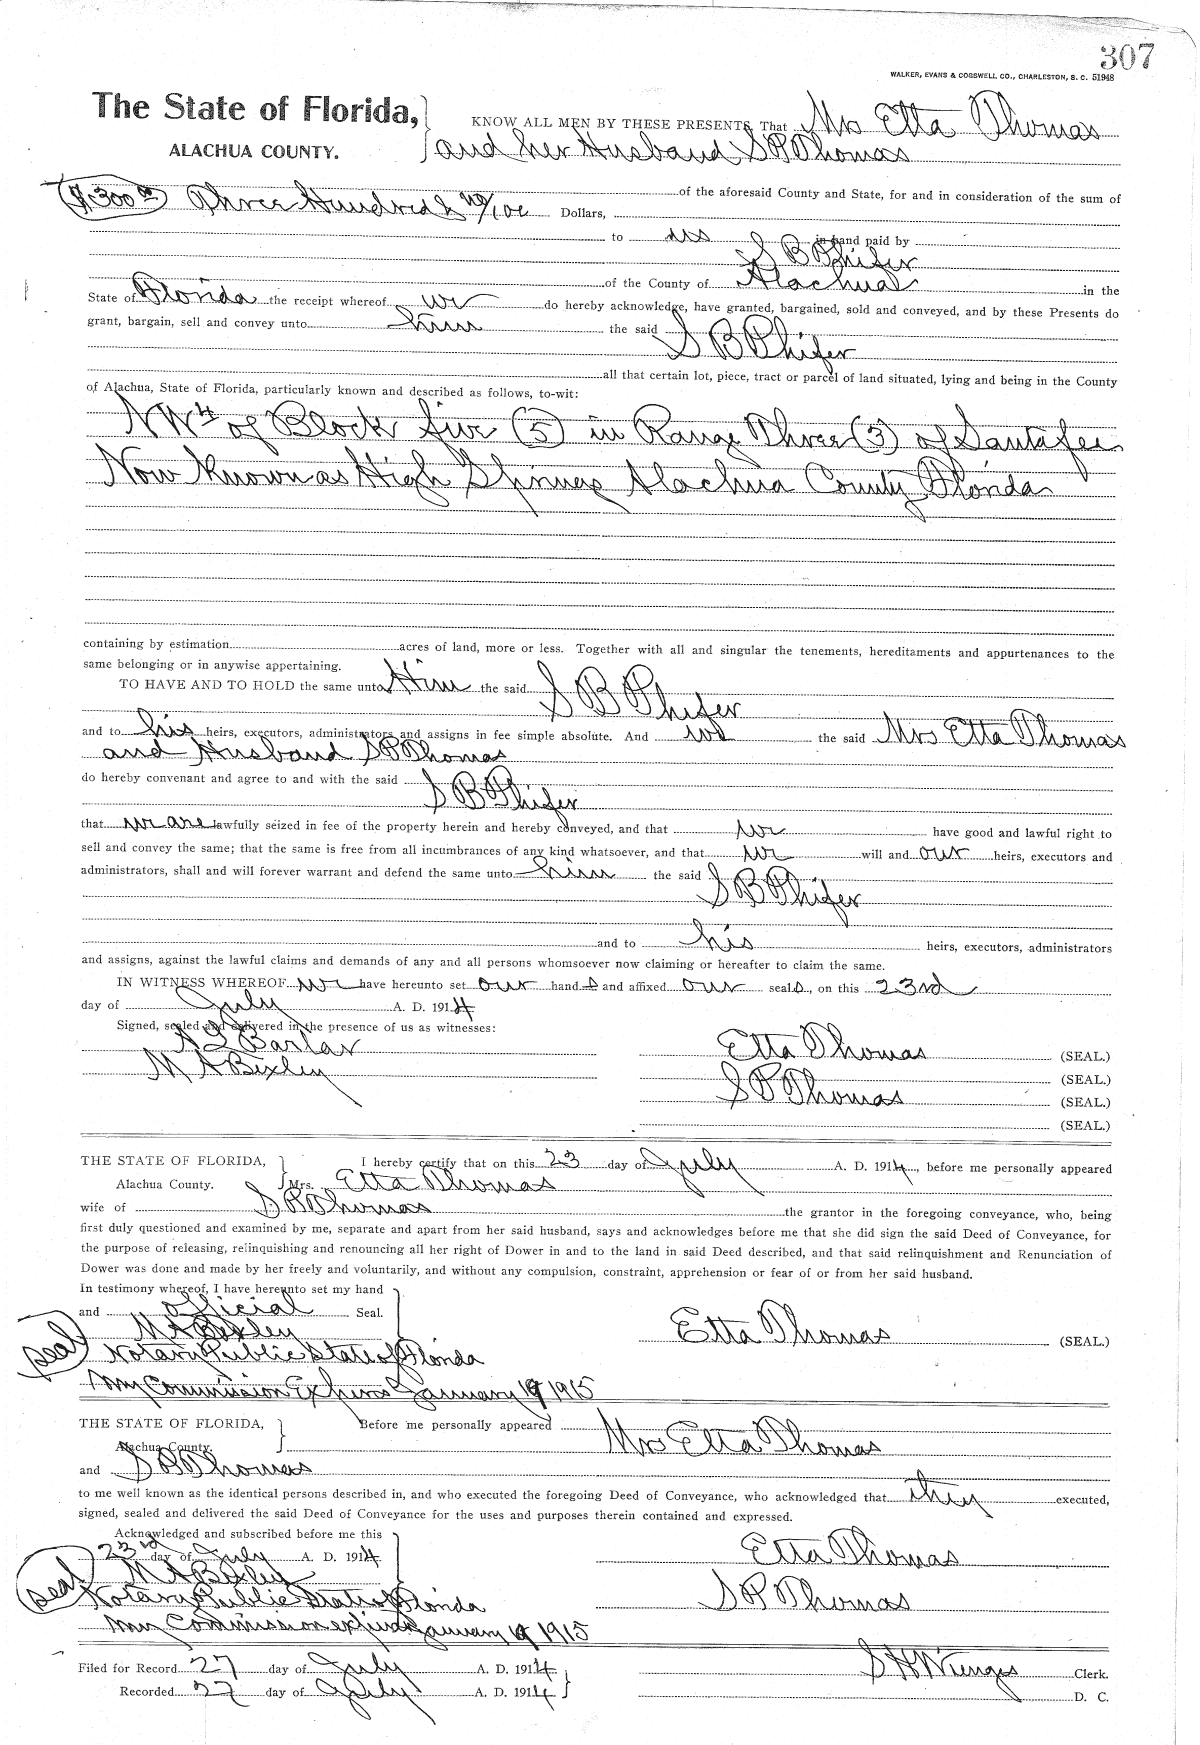 307
WALKER, EVANS & COGSWELL CO., CHARLESTON, S. C. 51948
The State of Florida,
ALACHUA COUNTY.
KNOW ALL MEN BY THESE PRESENTS, That Mrs Etta Thomas
and her Husband S P Thomas
of the aforesaid County and State, for and in consideration of the sum of
$300 00 Three Hundred & no/100 Dollars,
to us in hand paid by
S B Phifer
of the County of Alachua in the
State of Florida the receipt whereof we do hereby acknowledge, have granted, bargained, sold and conveyed, and by these Presents do
grant, bargain, sell and convey unto him the said S B Phifer
all that certain lot, piece, tract or parcel of land situated, lying and being in the County
of Alachua, State of Florida, particularly known and described as follows, to-wit:
NW 4 of Block five (5) in Range Three (3) of Santafee
Now Known as High Springs Alachua County Florida
containing by estimation acres of land, more or less. Together with all and singular the tenements, hereditaments and appurtenances to the
same belonging or in anywise appertaining.
TO HAVE AND TO HOLD the same unto Him the said S B Phifer
and to his heirs, executors, administrators and assigns in fee simple absolute. And we the said Mrs Etta Thomas
and Husband S P Thomas
do hereby convenant and agree to and with the said S B Phifer
that we are lawfully seized in fee of the property herein and hereby conveyed, and that we have good and lawful right to
sell and convey the same; that the same is free from all incumbrances of any kind whatsoever, and that we will and our heirs, executors and
administrators, shall and will forever warrant and defend the same unto him the said S B Phifer
and to his heirs, executors, administrators
and assigns, against the lawful claims and demands of any and all persons whomsoever now claiming or hereafter to claim the same.
IN WITNESS WHEREOF we have hereunto set our hands and affixed our seals, on this 23rd
day of July A. D. 1914
Signed, sealed and delivered in the presence of us as witnesses:
Etta Thomas (SEAL.)
M A Bixley (SEAL.)
S P Thomas (SEAL.)
(SEAL.)
THE STATE OF FLORIDA, I hereby certify that on this 23 day of July A. D. 1914, before me personally appeared
Alachua County. Mrs. Etta Thomas
wife of S P Thomas the grantor in the foregoing conveyance, who, being
first duly questioned and examined by me, separate and apart from her said husband, says and acknowledges before me that she did sign the said Deed of Conveyance, for
the purpose of releasing, relinquishing and renouncing all her right of Dower in and to the land in said Deed described, and that said relinquishment and Renunciation of
Dower was done and made by her freely and voluntarily, and without any compulsion, constraint, apprehension or fear of or from her said husband.
In testimony whereof, I have hereunto set my hand
and official Seal.
M A Bixley Etta Thomas (SEAL.)
seal Notary Public State of Florida
My Commission Expires January 19 1915
THE STATE OF FLORIDA, Before me personally appeared
Alachua County. Mrs Etta Thomas
and S P Thomas
to me well known as the identical persons described in, and who executed the foregoing Deed of Conveyance, who acknowledged that they executed,
signed, sealed and delivered the said Deed of Conveyance for the uses and purposes therein contained and expressed.
Acknowledged and subscribed before me this
23rd day of July A. D. 1914 Etta Thomas
M A Bixley
seal Notary Public State of Florida S P Thomas
My Commission expires January 19 1915
Filed for Record 27 day of July A. D. 1914 S H Wienges Clerk.
Recorded 27 day of July A. D. 1914 D. C.